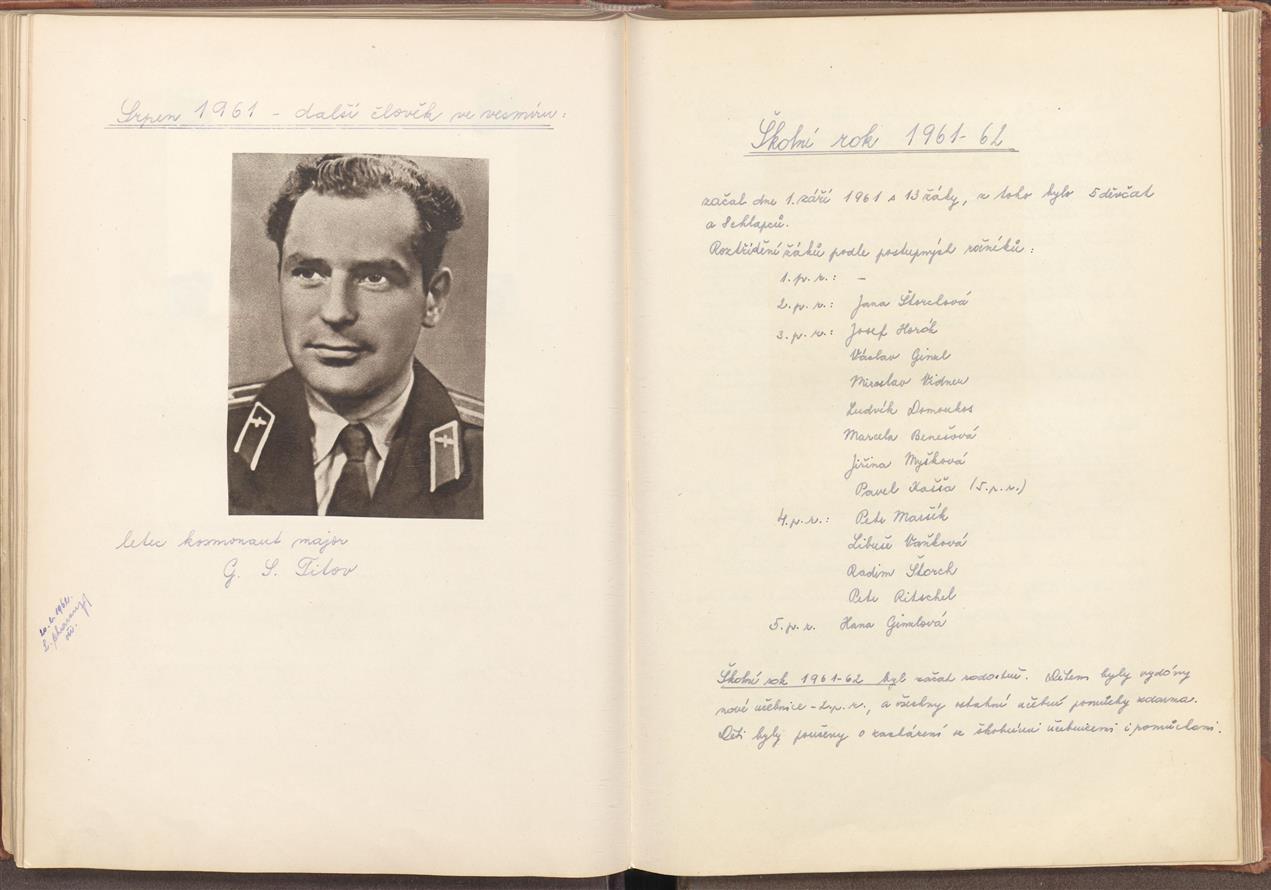 Srpen 1961 - další člověk ve vesmíru:
letec kosmonaut major
G. S. Titov
Školní rok 1961-62
začal dne 1. září 1961 s 13 žáky, z toho bylo 5 děvčat
a 8 chlapců.
Roztřídění žáků podle postupných ročníků:
1. p. r.: -
2. p. r.: Jana Štorchová
3. p. r.: Josef Horák
Václav Giml
Miroslav
Ludvík Domonkos
Marcela Benešová
Jiřina Myšková
Pavel Kašša (5. p. r.)
4. p. r.: Petr Maršík
Libuše Vaňková
Radim Štorch
Petr Ritschel
5. p. r. Hana Gimlová
Školní rok 1961-62 byl začat radostně. Dětem byly vydány
nové učebnice - 2. p. r., a všechny ostatní učební pomůcky zdarma.
Děti byly poučeny o zacházení se školními učebnicemi i pomůckami.